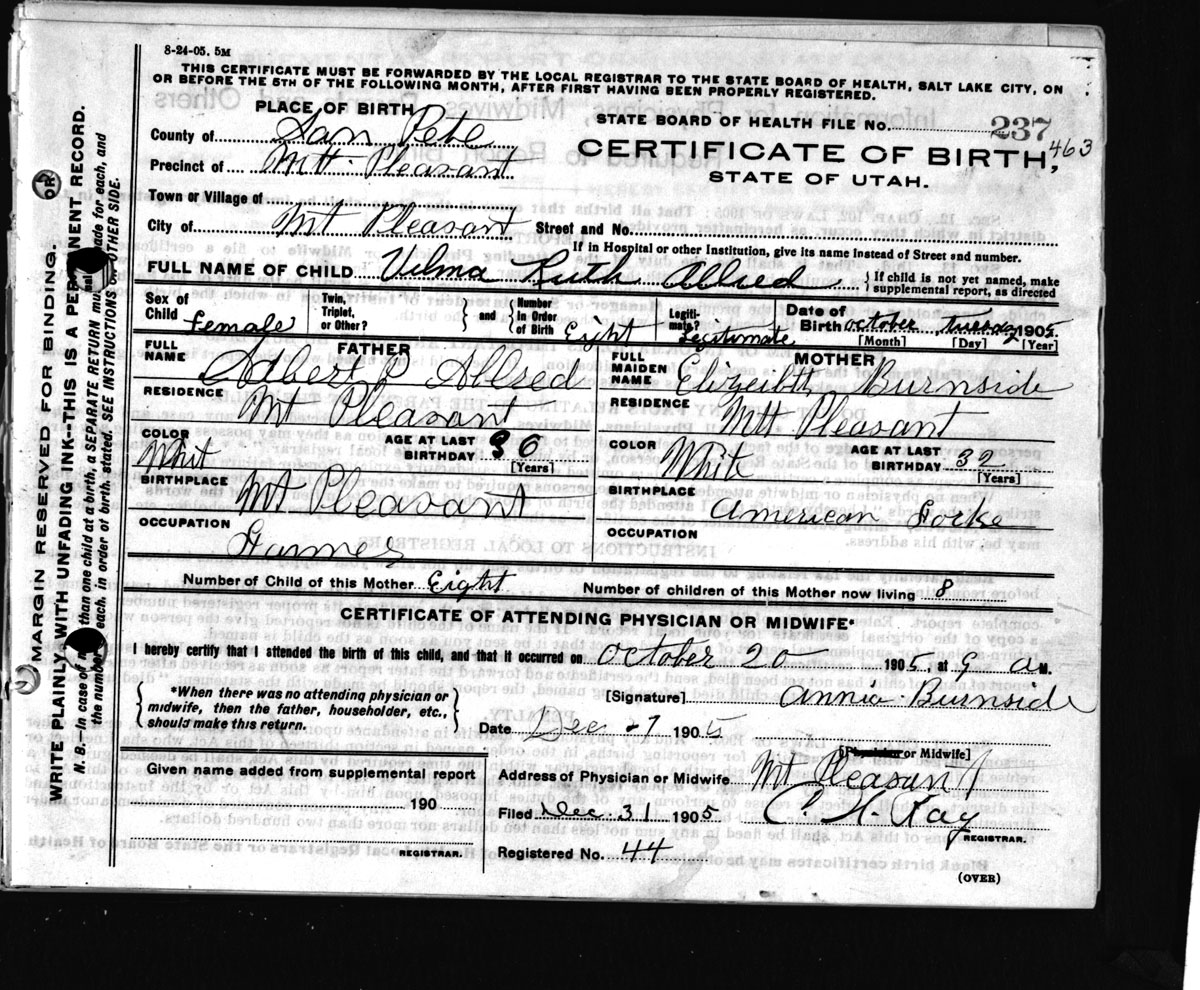 8-24-05. 5M
THIS CERTIFICATE MUST BE FORWARDED BY THE LOCAL REGISTRAR TO THE STATE BOARD OF HEALTH, SALT LAKE CITY, ON
OR BEFORE THE 5TH OF THE FOLLOWING MONTH, AFTER FIRST HAVING BEEN PROPERLY REGISTERED.
PLACE OF BIRTH
STATE BOARD OF HEALTH FILE No. 237
463
County of San Pete
CERTIFICATE OF BIRTH,
Precinct of Mtt. Pleasant
STATE OF UTAH.
Town or Village of
City of Mt Pleasant Street and No.
If in Hospital or other Institution, give its name instead of Street and number.
FULL NAME OF CHILD Velma Ruth Allred { If child is not yet named, make supplemental report, as directed
Sex of Child Female Twin, Triplet, or Other? } and { Number in Order of Birth Eight Legiti-mate? Legitimate Date of Birth October Tuesday 1905
[Month] [Day] [Year]
FULL NAME FATHER Albert P Allred
FULL MAIDEN NAME MOTHER Elizeibth Burnside
RESIDENCE Mt Pleasant
RESIDENCE Mtt Pleasant
COLOR Whit AGE AT LAST BIRTHDAY 36 [Years]
COLOR White AGE AT LAST BIRTHDAY 32 [Years]
BIRTHPLACE Mt Pleasant
BIRTHPLACE American Forke
OCCUPATION Farmer
OCCUPATION
Number of Child of this Mother Eight Number of children of this Mother now living 8
CERTIFICATE OF ATTENDING PHYSICIAN OR MIDWIFE*
I hereby certify that I attended the birth of this child, and that it occurred on October 20 1905, at 9 a M.
{ *When there was no attending physician or midwife, then the father, householder, etc., should make this return. }
[Signature] Annia Burnside
Date Dec - 7 1905
[Physician or Midwife]
Given name added from supplemental report
190
REGISTRAR.
Address of Physician or Midwife Mt Pleasant
Filed Dec. 31 1905 C. N. Kay
REGISTRAR.
Registered No. 44
(OVER)
MARGIN RESERVED FOR BINDING.
WRITE PLAINLY WITH UNFADING INK--THIS IS A PERMANENT RECORD.
N. B.—In case of than one child at a birth, a SEPARATE RETURN must made for each, and
the number each, in order of birth, stated. SEE INSTRUCTIONS OTHER SIDE.